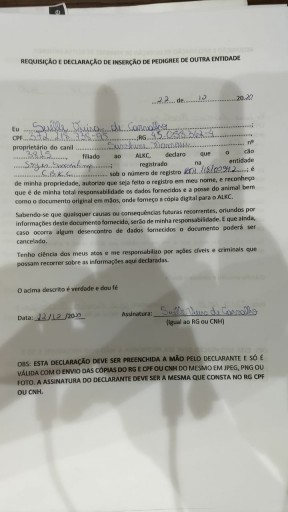 REQUISIÇÃO E DECLARAÇÃO DE INSERÇÃO DE PEDIGREE DE OUTRA ENTIDADE
22 de 12 2020
Eu de Carvalho;
CPF RG
proprietário do canil nº
3815, filiado ao ALKC, declaro que o cão
registrado na entidade
C.B.K.C. sob o número de registro; é
de minha propriedade, autorizo que seja feito o registro em meu nome, e reconheço
que é de minha total responsabilidade os dados fornecidos e a posse do animal bem
como o documento original em mãos, onde forneço a cópia digital para o ALKC.
Sabendo-se que quaisquer causas ou consequências futuras recorrentes, oriundos por
informações deste documento fornecido, serão de minha responsabilidade. E que ainda,
caso ocorra algum desencontro de dados fornecidos o documento poderá ser
cancelado.
Tenho ciência dos meus atos e me responsabilizo por ações cíveis e criminais que
possam recorrer sobre as informações aqui declaradas.
O acima descrito é verdade e dou fé
Data: 22/12/2020 Assinatura: de Carvalho
(Igual ao RG ou CNH)
OBS: ESTA DECLARAÇÃO DEVE SER PREENCHIDA A MÃO PELO DECLARANTE E SÓ É
VÁLIDA COM O ENVIO DAS CÓPIAS DO RG E CPF OU CNH DO MESMO EM JPEG, PNG OU
FOTO. A ASSINATURA DO DECLARANTE DEVE SER A MESMA QUE CONSTA NO RG CPF
OU CNH.